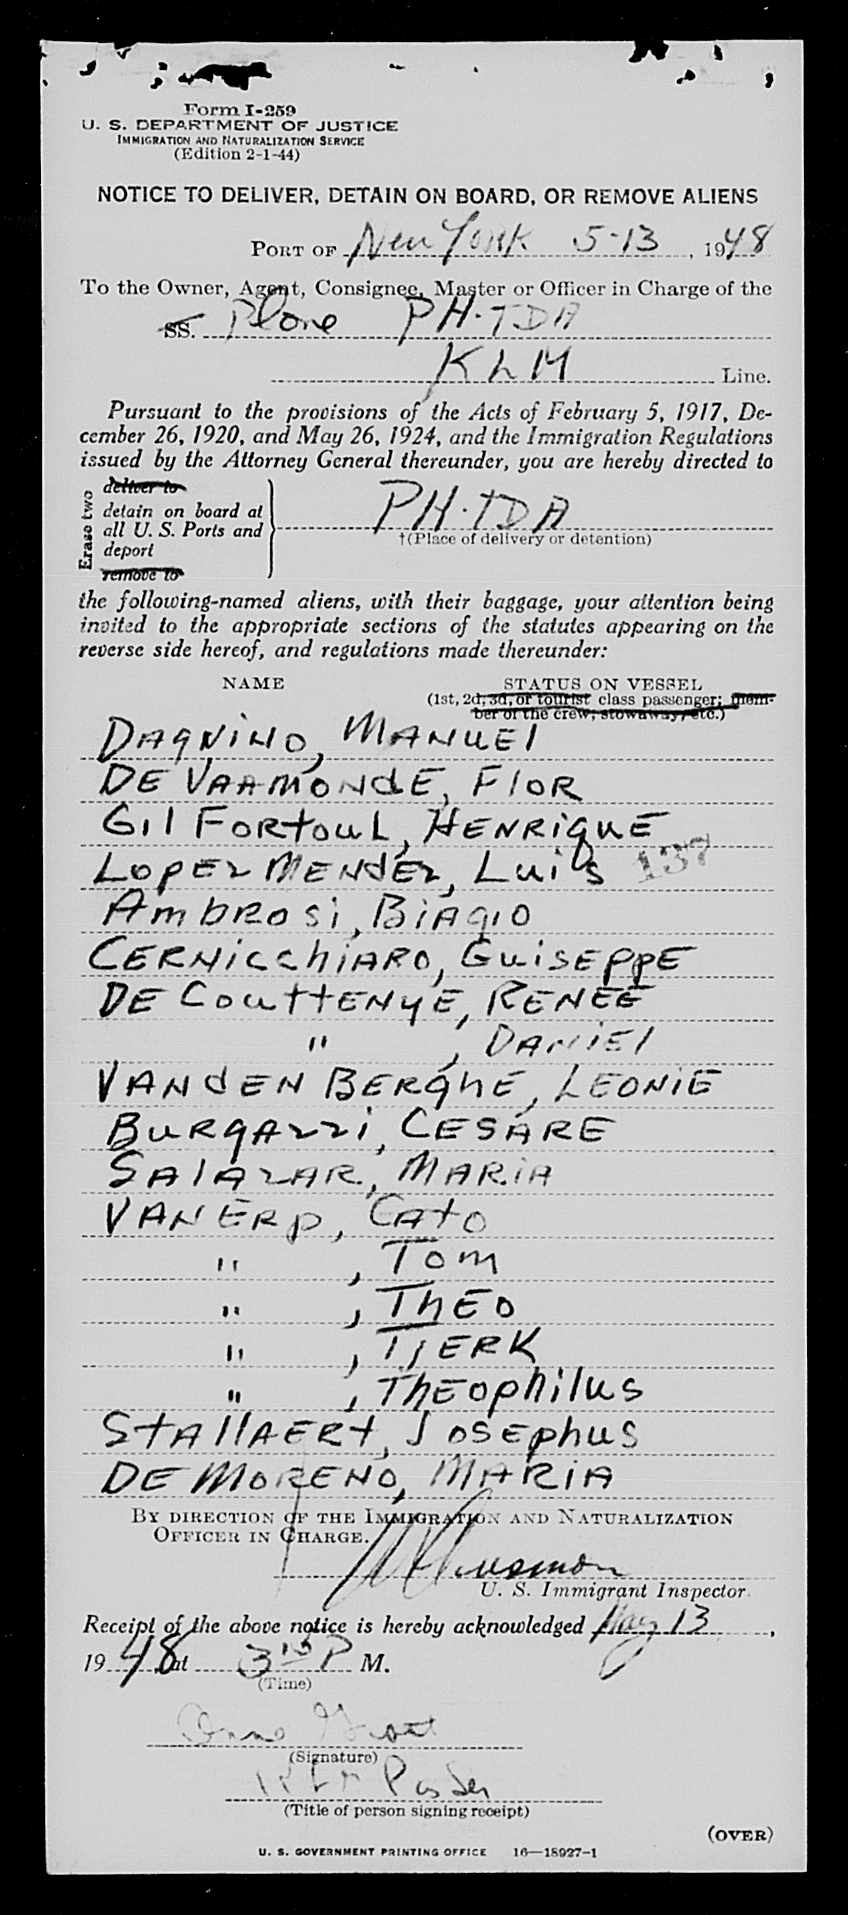 Form I-259
U. S. DEPARTMENT OF JUSTICE
IMMIGRATION AND NATURALIZATION SERVICE
(Edition 2-1-44)
NOTICE TO DELIVER, DETAIN ON BOARD, OR REMOVE ALIENS
PORT OF New York 5-13, 1948
To the Owner, Agent, Consignee, Master or Officer in Charge of the
SS. Plane PH-TDA
KLM Line.
Pursuant to the provisions of the Acts of February 5, 1917, De-
cember 26, 1920, and May 26, 1924, and the Immigration Regulations
issued by the Attorney General thereunder, you are hereby directed to
Erase two
deliver to
detain on board at
all U. S. Ports and
deport
remove to
PH-TDA
†(Place of delivery or detention)
the following-named aliens, with their baggage, your attention being
invited to the appropriate sections of the statutes appearing on the
reverse side hereof, and regulations made thereunder:
NAME STATUS ON VESSEL
(1st, 2d, 3d, or tourist class passenger; mem-
ber of the crew, stowaway, etc.)
DAgNiNO, MANuEl
DE VAAMONdE, FlOR
Gil FORtouL, HENRiquE
LopEz MENdEz, Luis 137
AmbROsi, BiAgiO
CERNicchiARO, GuisEppE
DE CouttENyE, RENEE
" , DANiEl
VANdEN BERghE, LEONiE
BuRgAzzi, CESARE
SAlAzAR, MARiA
VAN ERp, CAtO
" , Tom
" , ThEO
" , TjERK
" , ThEophilus
StAllAERt, JOSEphuS
DE MORENO, MARiA
BY DIRECTION OF THE IMMIGRATION AND NATURALIZATION
OFFICER IN CHARGE.
U. S. Immigrant Inspector.
Receipt of the above notice is hereby acknowledged May 13,
1948 at 3 15 P M.
(Time)
(Signature)
KLM
(Title of person signing receipt)
(OVER)
U. S. GOVERNMENT PRINTING OFFICE 16—18927-1